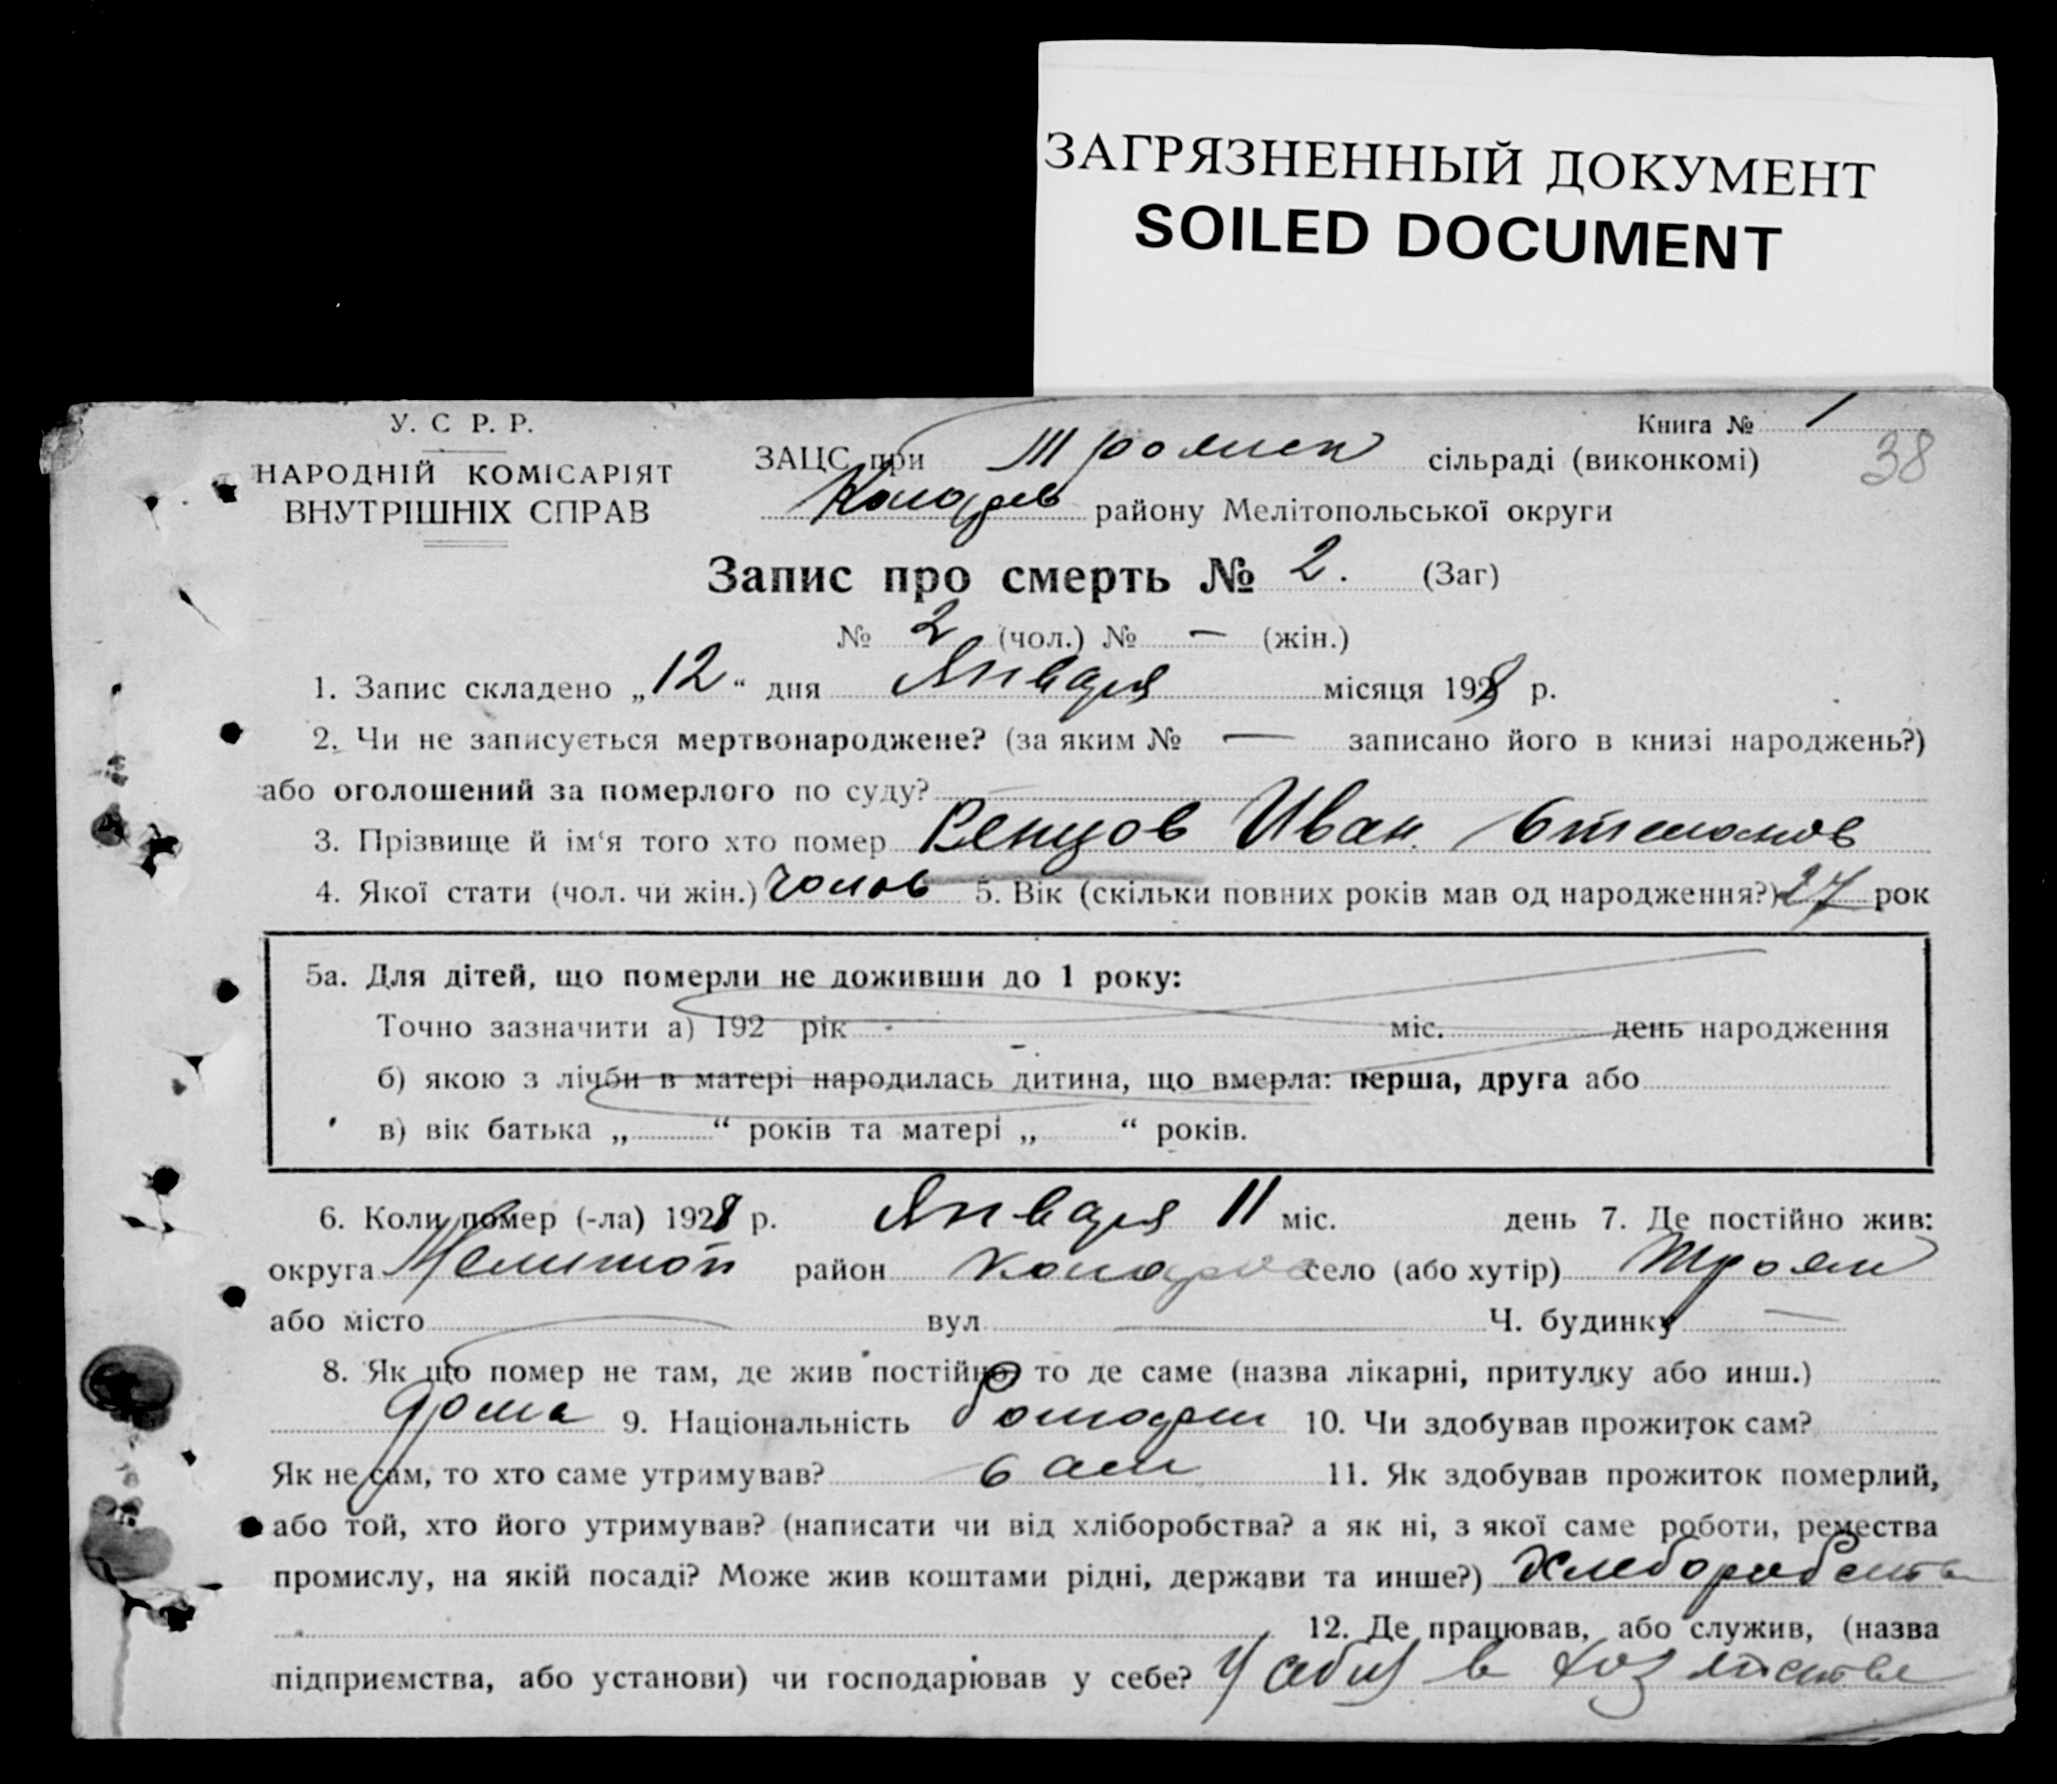 ЗАГРЯЗНЕННЫЙ ДОКУМЕНТ
SOILED DOCUMENT
У. С Р. Р.
НАРОДНІЙ КОМІСАРІЯТ
ВНУТРІШНІХ СПРАВ
Книга № 1
38
ЗАЦС при Троянск сільраді (виконкомі)
району Мелітопольської округи
Запис про смерть № 2. (Заг)
№ 2 (чол.) № — (жін.)
1. Запис складено „12“ дня Января місяця 1928 р.
2. Чи не записується мертвонароджене? (за яким № — записано його в книзі народжень?)
або оголошений за померлого по суду? —
3. Прізвище й ім‘я того хто помер Иван Степанов
4. Якої стати (чол. чи жін.) Чолов 5. Вік (скільки повних років мав од народження?) 27 рок
5а. Для дітей, що померли не доживши до 1 року:
Точно зазначити а) 192 рік міс. день народження
б) якою з лічби в матері народилась дитина, що вмерла: перша, друга або
в) вік батька „ “ років та матері „ “ років.
6. Коли помер (-ла) 1928 р. Января 11 міс. день 7. Де постійно жив:
округа Мелитоп район село (або хутір) Троян
або місто — вул — Ч. будинку —
8. Як що помер не там, де жив постійно, то де саме (назва лікарні, притулку або инш.)
дома 9. Національність болгари 10. Чи здобував прожиток сам?
Як не сам, то хто саме утримував? сам 11. Як здобував прожиток померлий,
або той, хто його утримував? (написати чи від хліборобства? а як ні, з якої саме роботи, ремества
промислу, на якій посаді? Може жив коштами рідні, держави та инше?) Хлеборобств
12. Де працював, або служив, (назва
підприємства, або установи) чи господарював у себе? У себя в хозяйстве